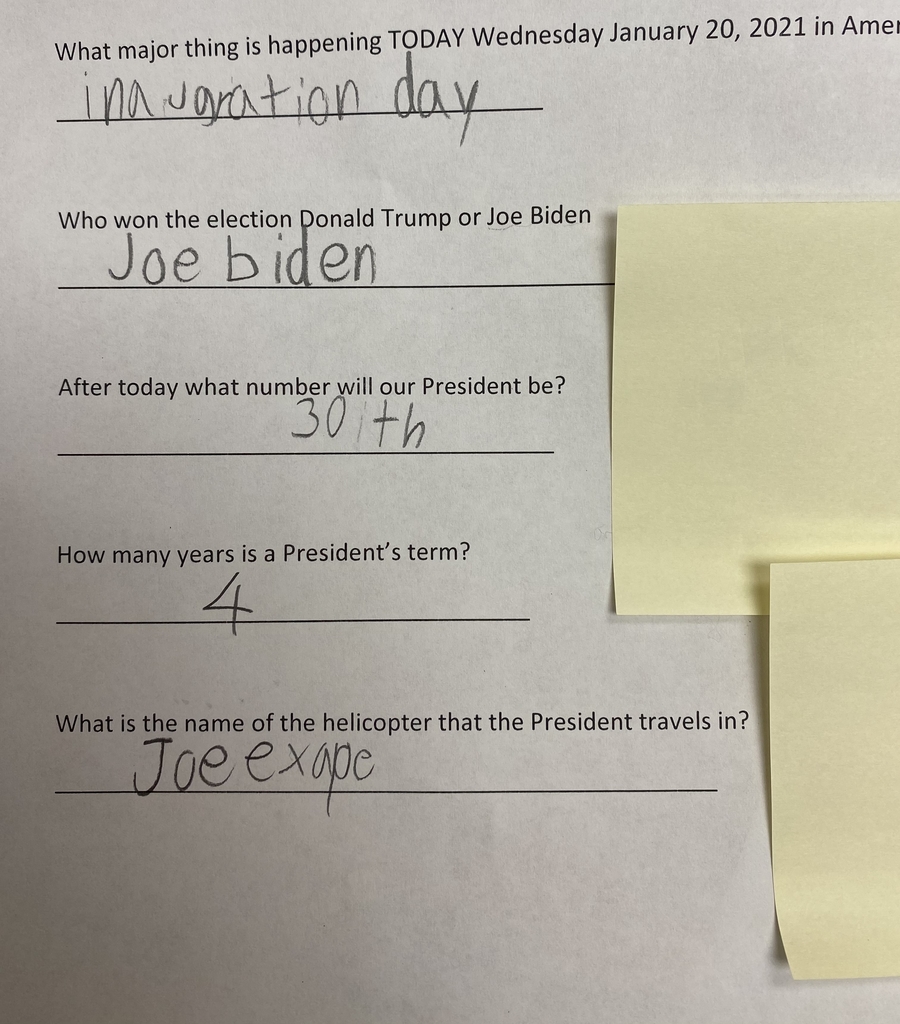 What major thing is happening TODAY Wednesday January 20, 2021 in Amer
inaugration day
Who won the election Donald Trump or Joe Biden
Joe biden
After today what number will our President be?
30th
How many years is a President's term?
4
What is the name of the helicopter that the President travels in?
Joe exape